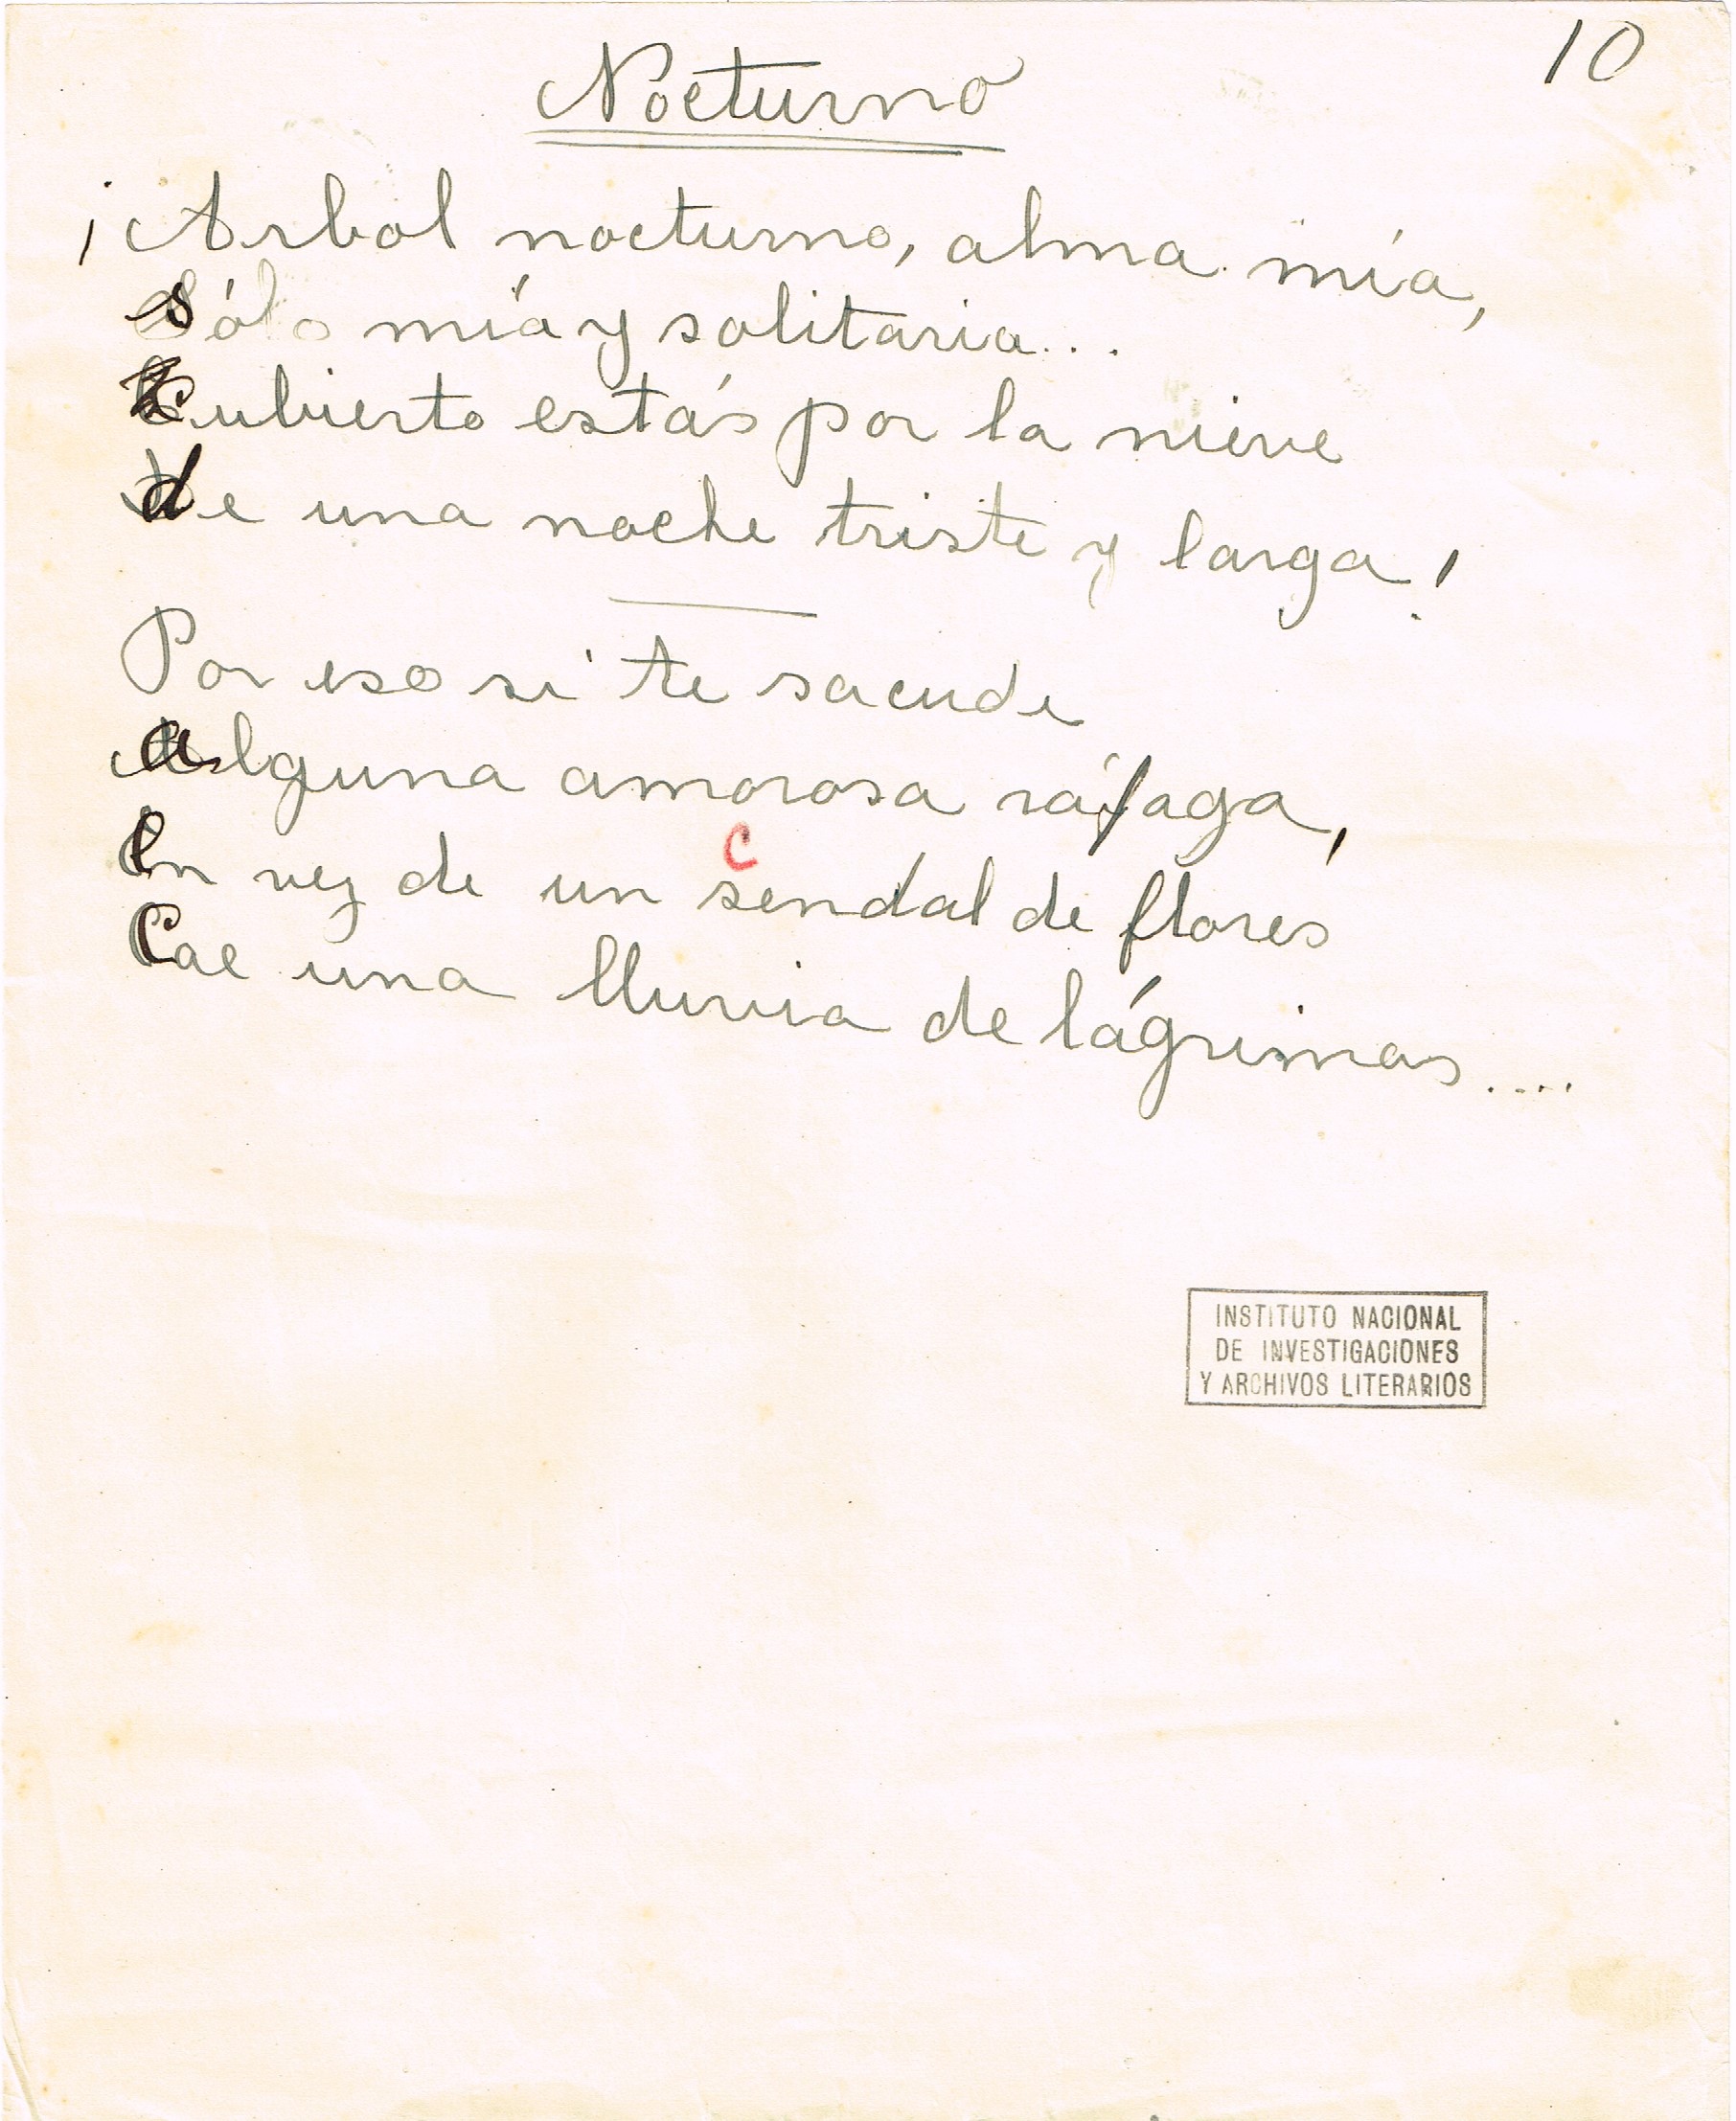 10
Nocturno
¡Arbol nocturno, alma mía,
sólo mía y solitaria...
cubierto estás por la nieve
de una noche triste y larga!
Por eso si te sacude
alguna amorosa ráfaga,
c
en vez de un sendal de flores
cae una lluvia de lágrimas....
INSTITUTO NACIONAL
DE INVESTIGACIONES
Y ARCHIVOS LITERARIOS